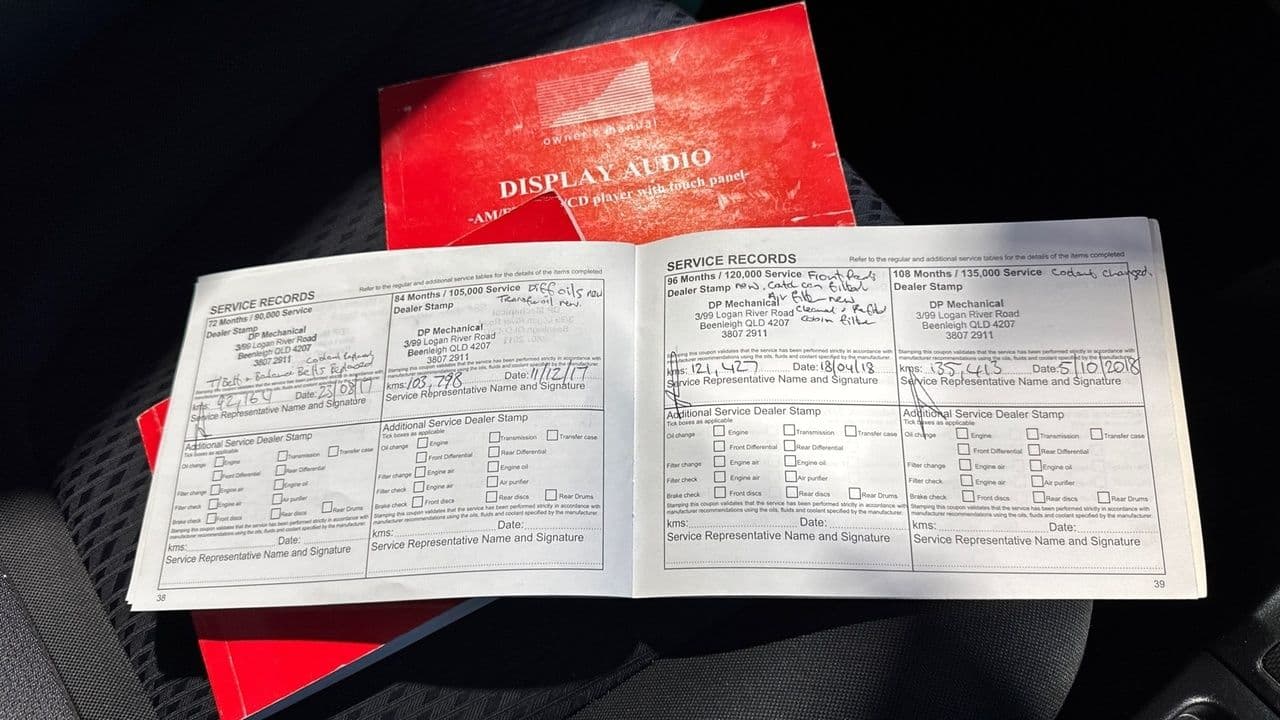 owner's manual
DISPLAY AUDIO
-AM/F /CD player with touch panel-
SERVICE RECORDS
Refer to the regular and additional service tables for the details of the items completed
72 Months / 90,000 Service
Dealer Stamp
DP Mechanical
3/99 Logan River Road
Beenleigh QLD 4207
3807 2911
Coolant Replaced
T/Belt & Balance Belts Replaced
Stamping this coupon validates that the service has been performed strictly in accordance with
kms: 92,160 Date: 23/03/17
Service Representative Name and Signature
Additional Service Dealer Stamp
Tick boxes as applicable
Oil change Engine Transmission Transfer case
Front Differential Rear Differential
Filter change Engine air Engine oil
Filter check Engine air Air purifier
Brake check Front discs Rear discs Rear Drums
Stamping this coupon validates that the service has been performed strictly in accordance with
manufacturer recommendations using the oils, fluids and coolant specified by the manufacturer.
kms: Date:
Service Representative Name and Signature
38
84 Months / 105,000 Service Diff oils new
Dealer Stamp Transfer oil new.
DP Mechanical
3/99 Logan River Road
Beenleigh QLD 4207
3807 2911
kms: 103,798 Date: 11/12/17
Service Representative Name and Signature
Additional Service Dealer Stamp
Tick boxes as applicable
Oil change Engine Transmission Transfer case
Front Differential Rear Differential
Filter change Engine air Engine oil
Filter check Engine air Air purifier
Brake check Front discs Rear discs Rear Drums
Stamping this coupon validates that the service has been performed strictly in accordance with
manufacturer recommendations using the oils, fluids and coolant specified by the manufacturer.
kms: Date:
Service Representative Name and Signature
SERVICE RECORDS
Refer to the regular and additional service tables for the details of the items completed
96 Months / 120,000 Service Front Pads
Dealer Stamp new. Catch can filter
Air filter new
DP Mechanical Cleaned & Refitted
3/99 Logan River Road Cabin filter
Beenleigh QLD 4207
3807 2911
Stamping this coupon validates that the service has been performed strictly in accordance with
manufacturer recommendations using the oils, fluids and coolant specified by the manufacturer.
kms: 121,427 Date: 18/04/18
Service Representative Name and Signature
Additional Service Dealer Stamp
Tick boxes as applicable
Oil change Engine Transmission Transfer case
Front Differential Rear Differential
Filter change Engine air Engine oil
Filter check Engine air Air purifier
Brake check Front discs Rear discs Rear Drums
Stamping this coupon validates that the service has been performed strictly in accordance with
manufacturer recommendations using the oils, fluids and coolant specified by the manufacturer.
kms: Date:
Service Representative Name and Signature
108 Months / 135,000 Service Coolant changed.
Dealer Stamp
DP Mechanical
3/99 Logan River Road
Beenleigh QLD 4207
3807 2911
Stamping this coupon validates that the service has been performed strictly in accordance with
manufacturer recommendations using the oils, fluids and coolant specified by the manufacturer.
kms: 135,413 Date: 5/10/2018
Service Representative Name and Signature
Additional Service Dealer Stamp
Tick boxes as applicable
Oil change Engine Transmission Transfer case
Front Differential Rear Differential
Filter change Engine air Engine oil
Filter check Engine air Air purifier
Brake check Front discs Rear discs Rear Drums
Stamping this coupon validates that the service has been performed strictly in accordance with
manufacturer recommendations using the oils, fluids and coolant specified by the manufacturer.
kms: Date:
Service Representative Name and Signature
39